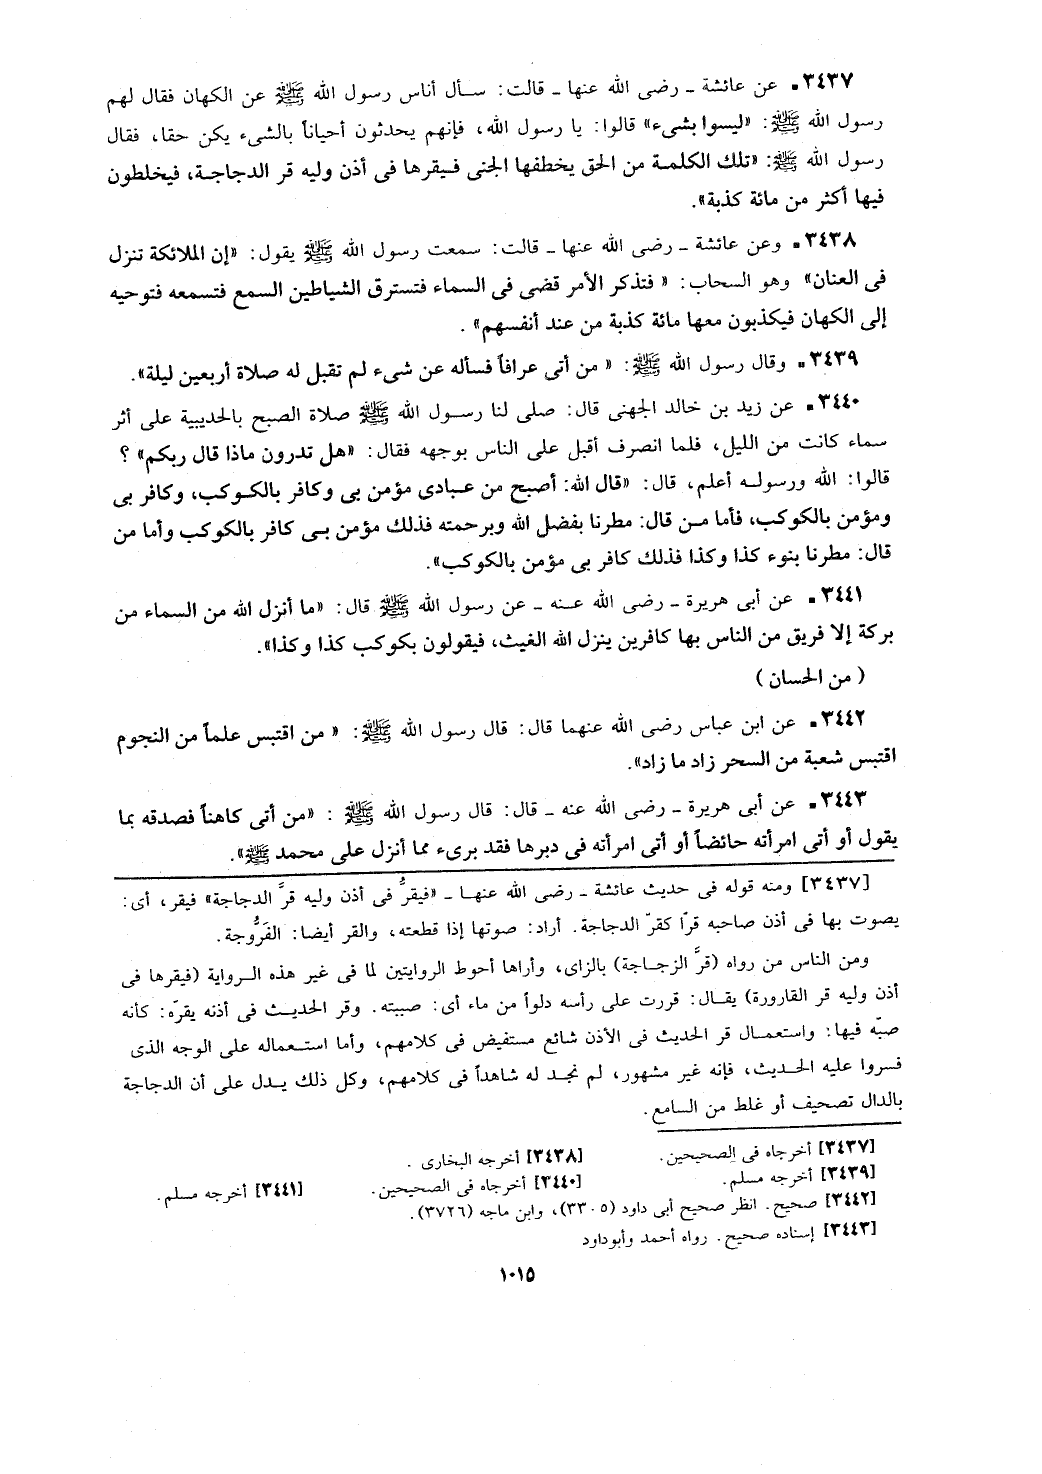 ٣٤٣٧. عن عائشة ـ رضى الله عنها ـ قالت: سـأل أناس رسول الله ﷺ عن الكهان فقال لهم
رسول الله ﷺ: «ليسوا بشىء» قالوا: يا رسول الله، فإنهم يحدثون أحياناً بالشىء يكن حقا، فقال
رسول الله ﷺ: «تلك الكلمة من الحق يخطفها الجنى فيقرها فى أذن وليه قر الدجاجة، فيخلطون
فيها أكثر من مائة كذبة».
٣٤٣٨. وعن عائشة ـ رضى الله عنها ـ قالت: سمعت رسول الله ﷺ يقول: «إن الملائكة تنزل
فى العنان» وهو السحاب: « فتذكر الأمر قضى فى السماء فتسترق الشياطين السمع فتسمعه فتوحيه
إلى الكهان فيكذبون معها مائة كذبة من عند أنفسهم» .
٣٤٣٩. وقال رسول الله ﷺ: « من أتى عرافاً فسأله عن شىء لم تقبل له صلاة أربعين ليلة».
٣٤٤٠. عن زيد بن خالد الجهنى قال: صلى لنا رسول الله ﷺ صلاة الصبح بالحديبية على أثر
سماء كانت من الليل، فلما انصرف أقبل على الناس بوجهه فقال: «هل تدرون ماذا قال ربكم» ؟
قالوا: الله ورسوله أعلم، قال: «قال الله: أصبح من عبادى مؤمن بى وكافر بالكوكب، وكافر بى
ومؤمن بالكوكب، فأما من قال: مطرنا بفضل الله وبرحمته فذلك مؤمن بى كافر بالكوكب وأما من
قال: مطرنا بنوء كذا وكذا فذلك كافر بى مؤمن بالكوكب».
٣٤٤١. عن أبى هريرة ـ رضى الله عنه ـ عن رسول الله ﷺ قال: «ما أنزل الله من السماء من
بركة إلا فريق من الناس بها كافرين ينزل الله الغيث، فيقولون بكوكب كذا وكذا».
( من الحسان )
٣٤٤٢. عن ابن عباس رضى الله عنهما قال: قال رسول الله ﷺ: « من اقتبس علماً من النجوم
اقتبس شعبة من السحر زاد ما زاد».
٣٤٤٣. عن أبى هريرة ـ رضى الله عنه ـ قال: قال رسول الله ﷺ : «من أتى كاهناً فصدقه بما
يقول أو أتى امرأته حائضاً أو أتى امرأته فى دبرها فقد برىء مما أنزل على محمد ﷺ».
[٣٤٣٧] ومنه قوله فى حديث عائشة ـ رضى الله عنها ـ «فيقرُّ فى أذن وليه قرَّ الدجاجة» فيقر، أى:
يصوت بها فى أذن صاحبه قرًا كقرّ الدجاجة. أراد: صوتها إذا قطعته، والقر أيضا: الفَرُّوجة.
ومن الناس من رواه (قرَّ الزجاجة) بالزاى، وأراها أحوط الروايتين لما فى غير هذه الرواية (فيقرها فى
أذن وليه قر القارورة) يقال: قررت على رأسه دلواً من ماء أى: صببته. وقر الحديث فى أذنه يقرّه: كأنه
صبّه فيها: واستعمال قر الحديث فى الأذن شائع مستفيض فى كلامهم، وأما استعماله على الوجه الذى
فسروا عليه الحديث، فإنه غير مشهور، لم نجد له شاهداً فى كلامهم، وكل ذلك يدل على أن الدجاجة
بالدال تصحيف أو غلط من السامع.
[٣٤٣٧] أخرجاه فى الصحيحين. [٣٤٣٨] أخرجه البخارى .
[٣٤٣٩] أخرجه مسلم. [٣٤٤٠] أخرجاه فى الصحيحين. [٣٤٤١] أخرجه مسلم.
[٣٤٤٢] صحيح. انظر صحيح أبى داود (٣٣٠٥)، وابن ماجه (٣٧٢٦).
[٣٤٤٣] إسناده صحيح. رواه أحمد وأبوداود
١٠١٥